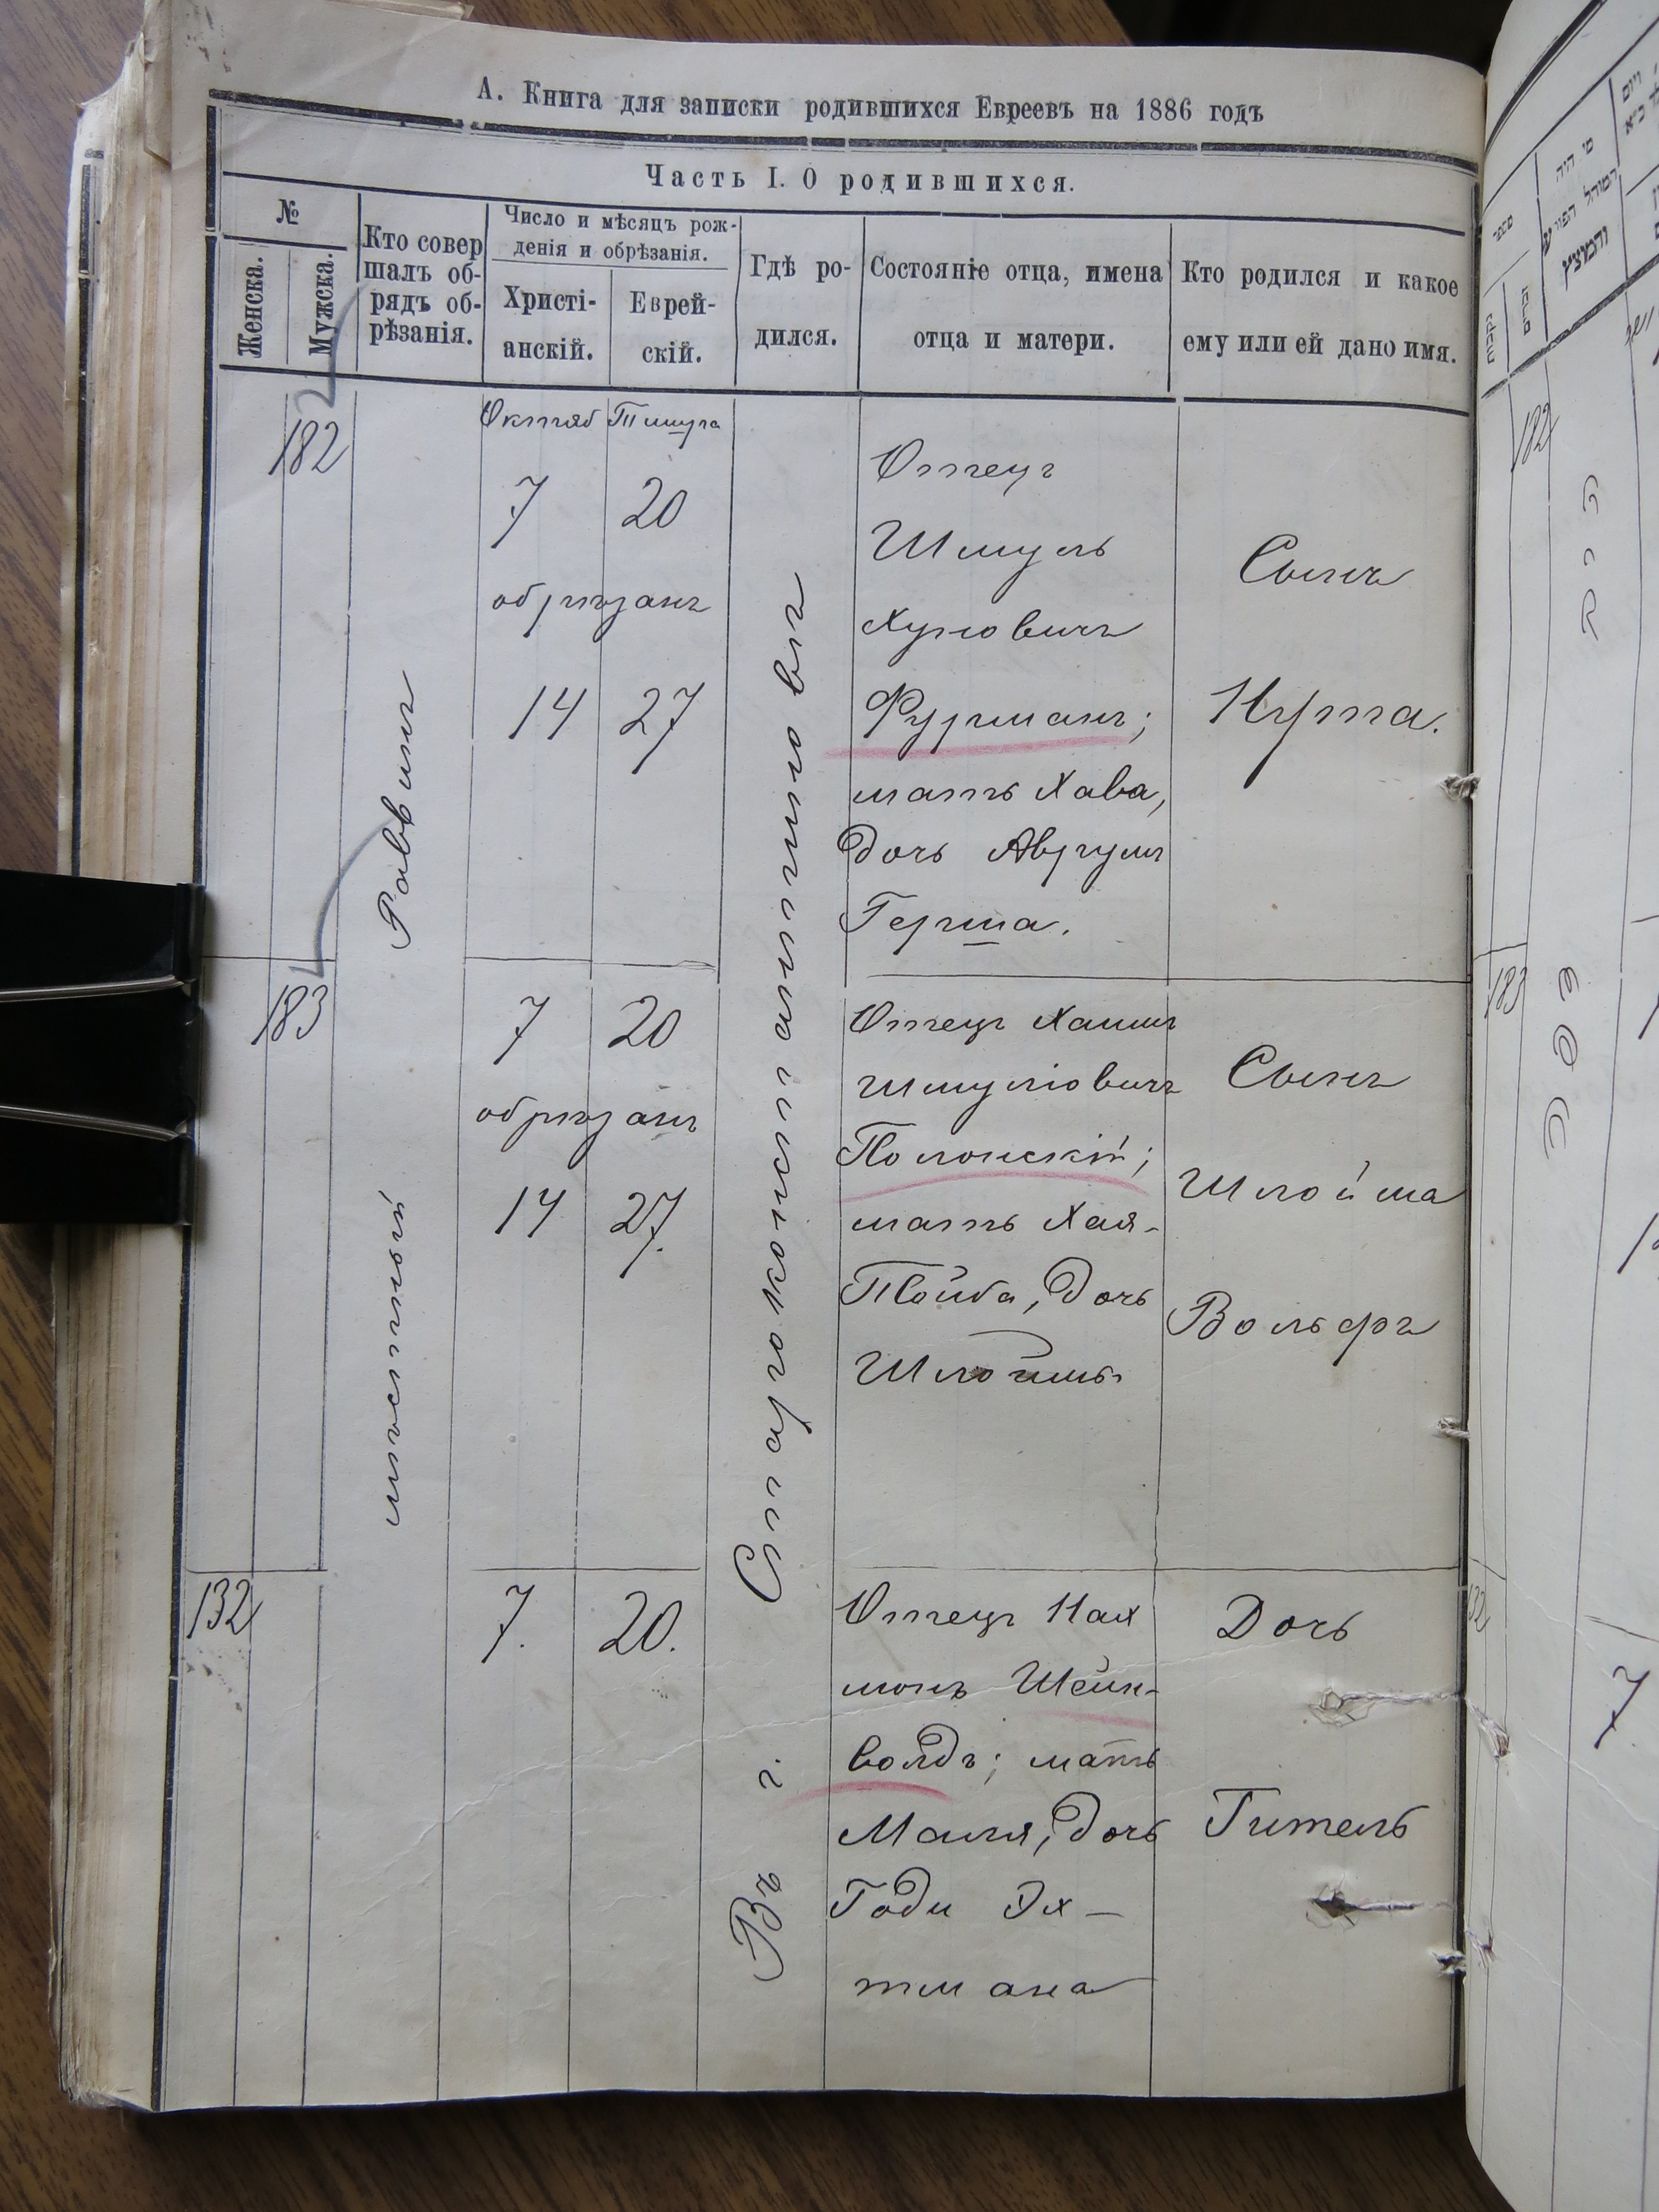 А. Книга для записки родившихся Евреевъ на 1886 годъ
Часть I. О родившихся.
№
Женска.
Мужска.
Кто совер
шалъ об-
рядъ об-
рѣзанія.
Число и мѣсяцъ рож-
денія и обрѣзанія.
Христі-
анскій.
Еврей-
скій.
Гдѣ ро-
дился.
Состояніе отца, имена
отца и матери.
Кто родился и какое
ему или ей дано имя.
Раввинъ
мѣстный
Въ г. Староконстантиновѣ
182
Октяб Тишра
7 20
обрѣзанъ
14 27
Отецъ
Шмуль
Хуновичъ
Фурманъ;
мать Хава,
дочь Аврумъ
Герша.
Сынъ
Нута.
183
7 20
обрѣзанъ
14 27.
Отецъ Хаимъ
Шмуліовичъ
Полонскій;
мать Хая-
Тойба, дочь
Шлоймы
Сынъ
Шлойма
Вольфъ
132
7. 20.
Отецъ Нах
монъ Шейн-
волдъ; мать
Маля, дочь
Годи Эх-
тмана
Дочь
Гитель
182
183
132
7